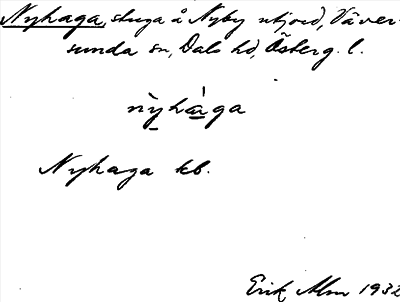 Nyhaga, stuga å Nyby utjord, Väver-
sunda sn, Dals hd, Österg. l.
nỳhàga
Nyhaga kb.
Erik Alm 1932